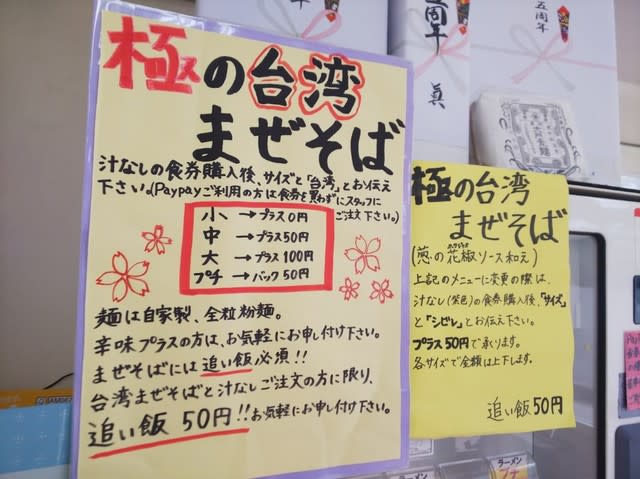 極の台湾
まぜそば
汁なしの食券購入後、サイズと「台湾」とお伝え
下さい。(Paypayご利用の方は食券を買わずにスタッフに
ご注文下さい。)
小→プラス0円
中→プラス50円
大→プラス100円
プチ→バック50円
麺は自家製、全粒粉麺。
辛味プラスの方は、お気軽にお申し付け下さい。
まぜそばには追い飯必須!!
台湾まぜそばと汁なしご注文の方に限り、
追い飯50円!!お気軽にお申し付け下さい。
極の台湾
まぜそば
(葱の花椒ソース和え)
上記のメニューに変更の際は、
汁なし(紫色)の食券購入後、「サイズ」
と「シビレ」とお伝え下さい。
プラス50円で承ります。
各サイズで金額は上下します。
追い飯50円
周年
真
五周年
ラーメン
ラーメン
プチ